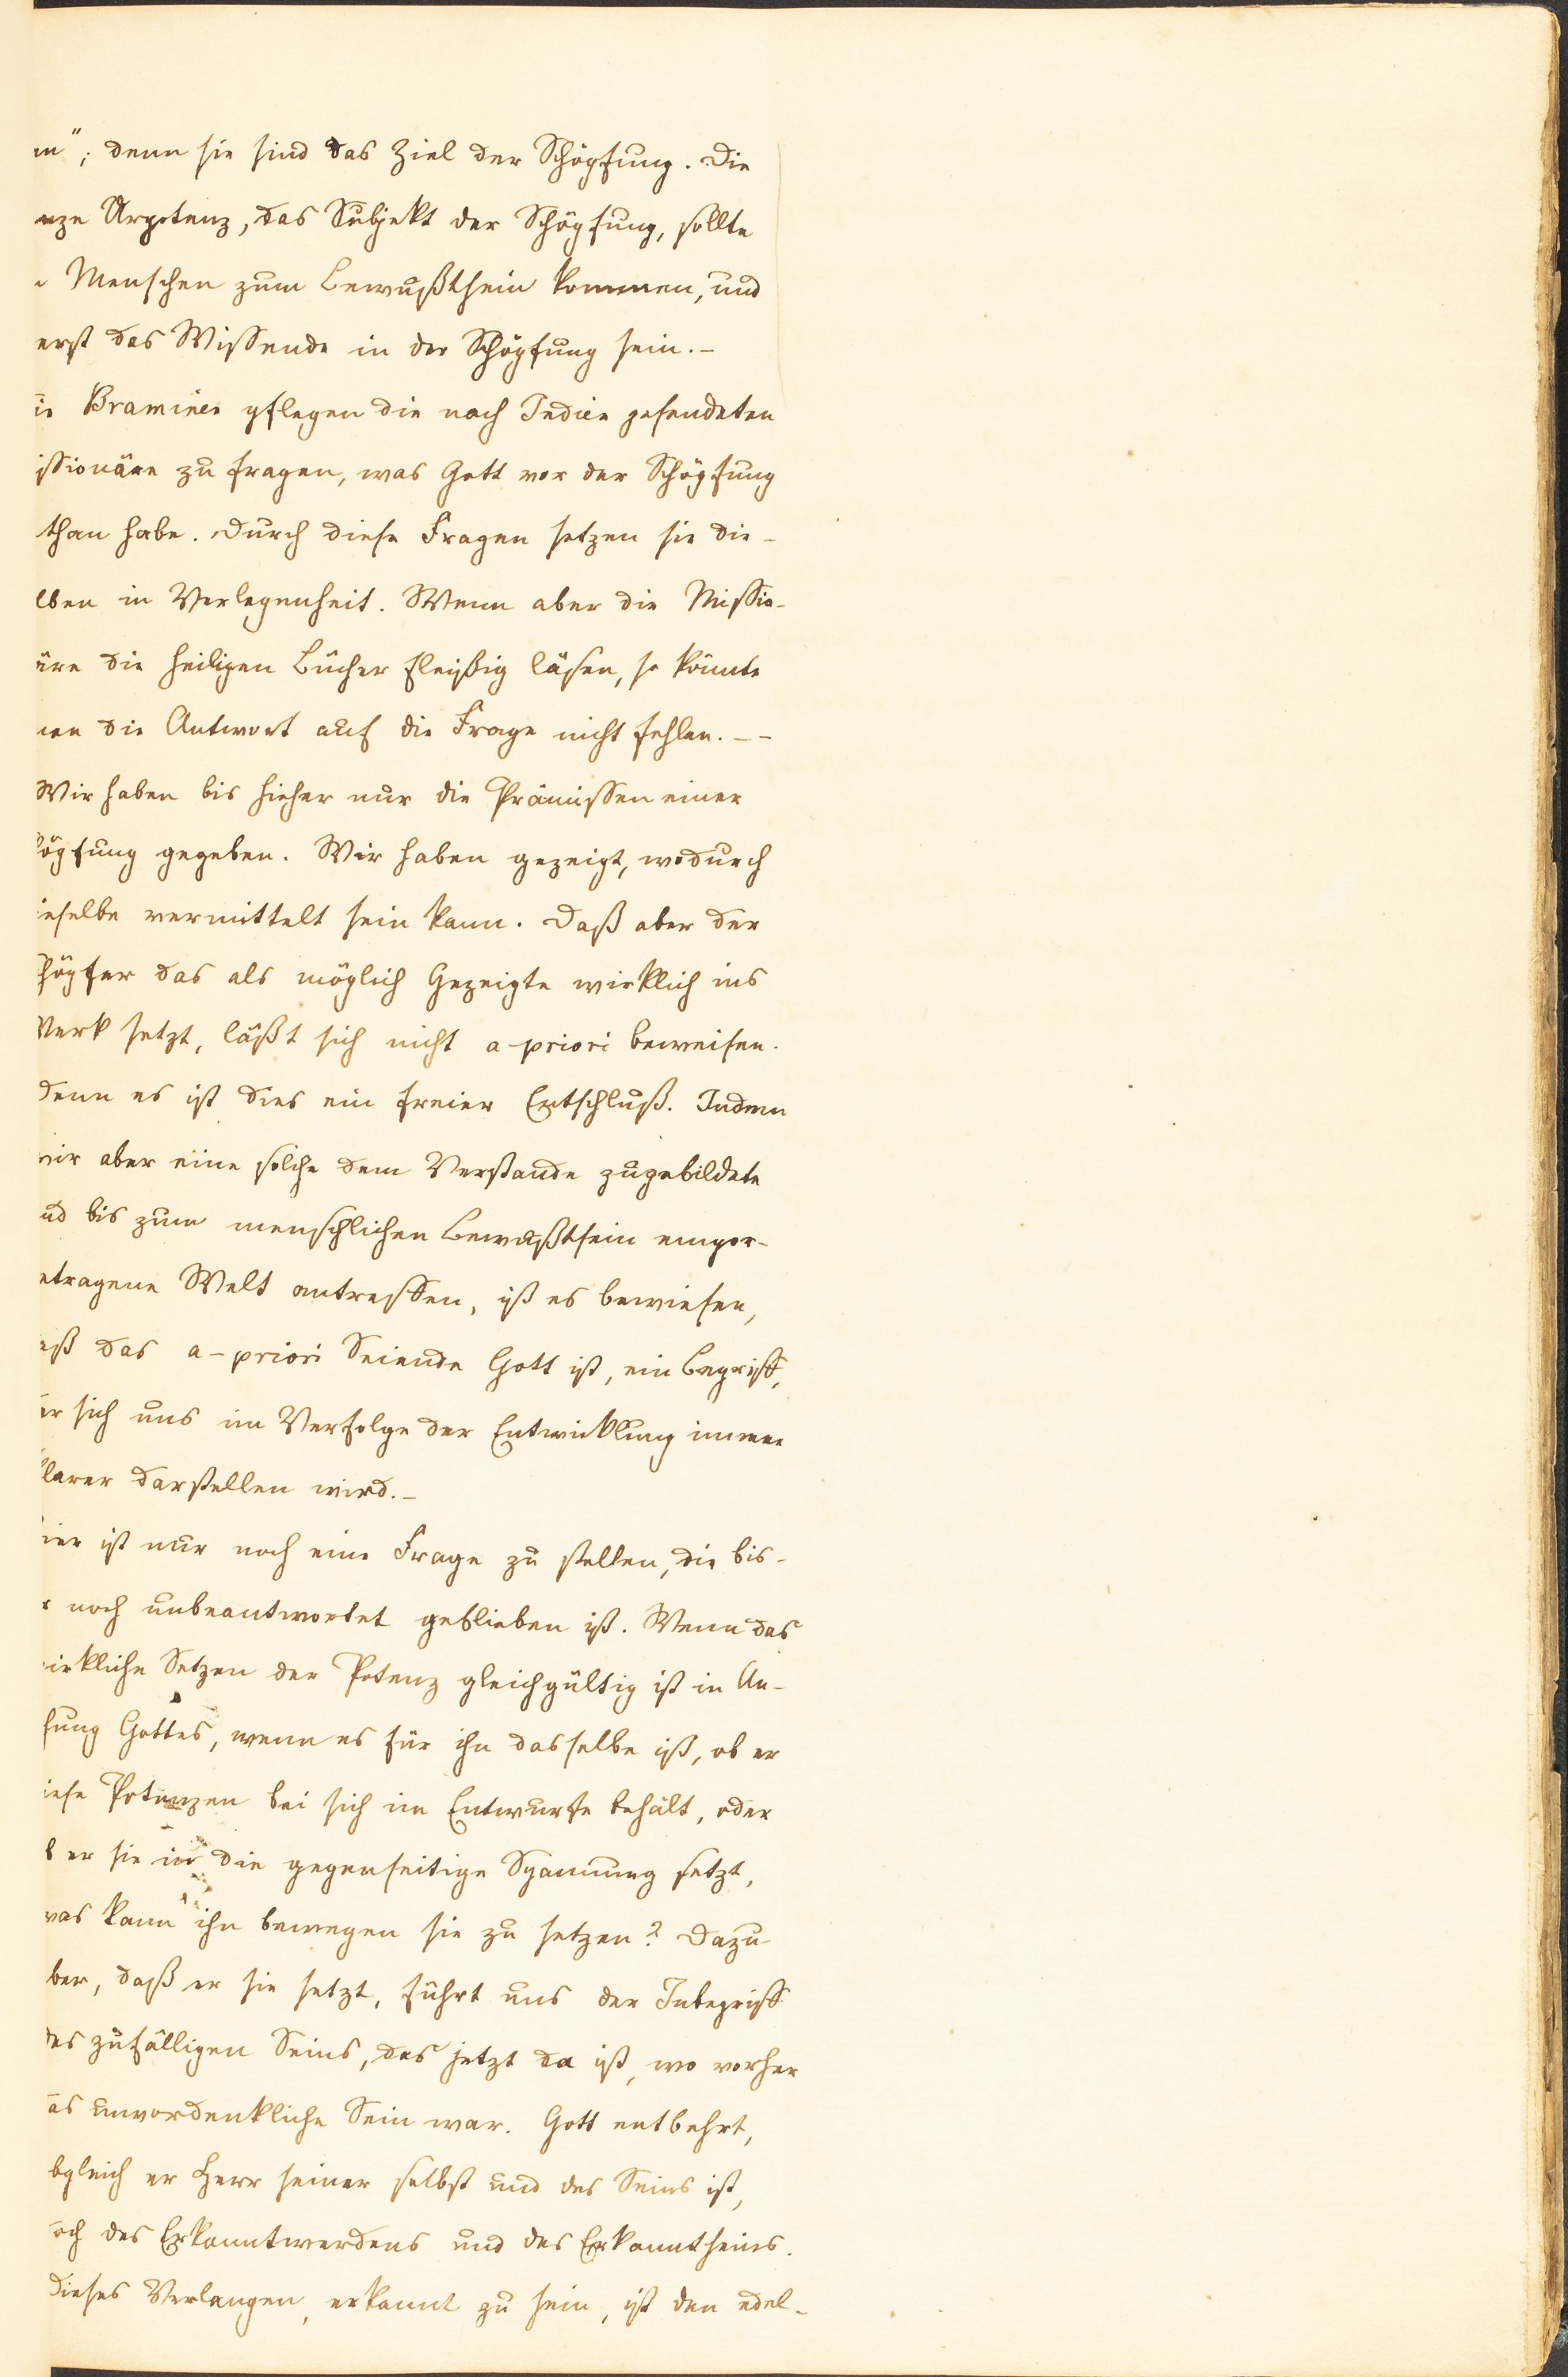 en"; denn sie sind das Ziel der Schöpfung. Die
nze Urpotenz, das Subjekt der Schöpfung, sollte
Menschen zum Bewußtsein kommen, und
erst das Wissende in der Schöpfung sein. –
ie Braminen pflegen die nach Indien gesendeten
issionäre zu fragen, was Gott vor der Schöpfung
than habe. Durch diese Fragen setzen sie die-
lben in Verlegenheit. Wenn aber die Missio-
äre die heiligen Bücher fleißig läsen, so könnte
nen die Antwort auf die Frage nicht fehlen. – –
Wir haben bis hieher nur die Prämissen einer
höpfung gegeben. Wir haben gezeigt, wodurch
ieselbe vermittelt sein kann. Daß aber der
höpfer das als möglich Gezeigte wirklich ins
Werk setzt, läßt sich nicht a-priori beweisen.
denn es ist dies ein freier Entschluß. Indem
wir aber eine solche dem Verstande zugebildete
nd bis zum menschlichen Bewußtsein empor-
etragene Welt antreffen, ist es bewiesen,
aß das a-priori Seiende Gott ist, ein Begriff,
er sich uns im Verfolge der Entwicklung immer
klarer darstellen wird. –
ier ist nur noch eine Frage zu stellen, die bis-
r noch unbeantwortet geblieben ist. Wenn das
wirkliche Setzen der Potenz gleichgültig ist in An-
hung Gottes, wenn es für ihn dasselbe ist, ob er
iese Potenzen bei sich im Entwurfe behält, oder
b er sie in die gegenseitige Spannung setzt,
was kann ihn bewegen sie zu setzen? Dazu
ber, daß er sie setzt, führt uns der Inbegriff
des zufälligen Seins, das jetzt da ist, wo vorher
as unvordenkliche Sein war. Gott entbehrt,
bgleich er Herr seiner selbst und des Seins ist,
och des Erkanntwerdens und des Erkanntseins.
Dieses Verlangen, erkannt zu sein, ist den edel-